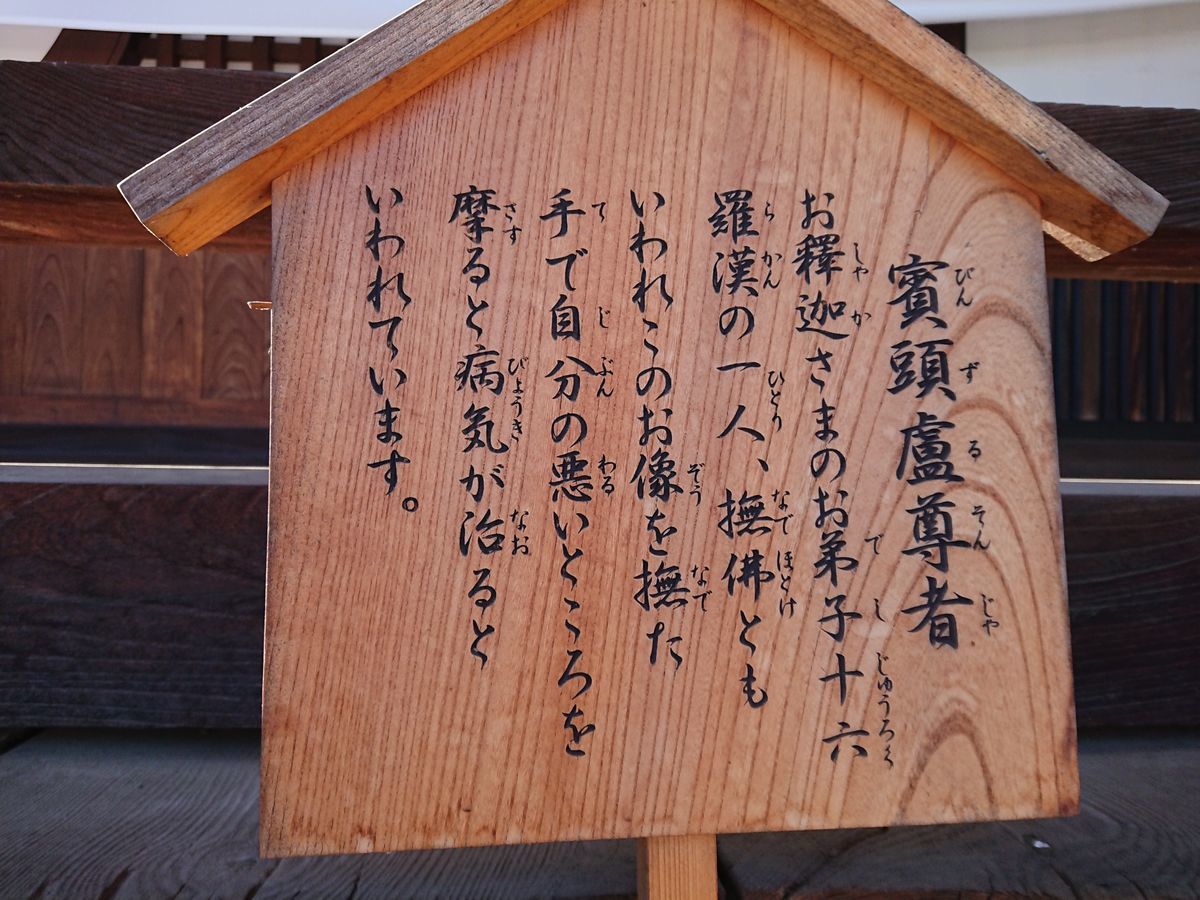 賓頭盧尊者
お釋迦さまのお弟子十六
羅漢の一人、撫佛とも
いわれこのお像を撫た
手で自分の悪いところを
摩ると病気が治ると
いわれています。